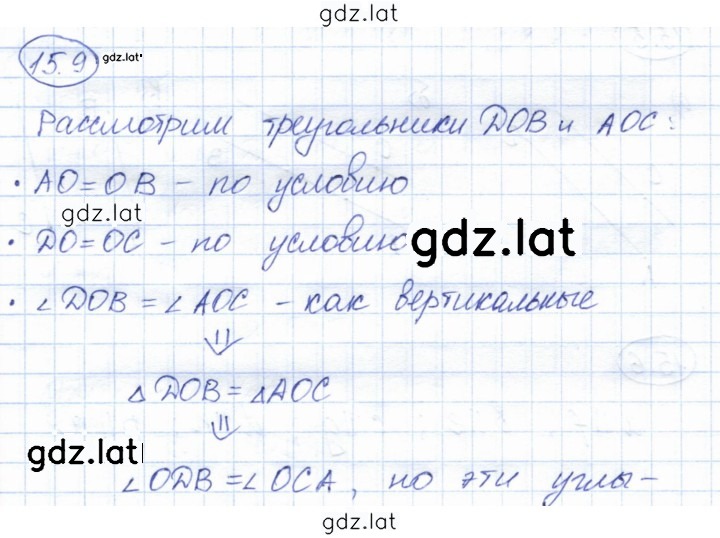 gdz.lat
15.9 gdz.lat
Рассмотрим треугольники DOB и AOC:
• AO=OB – по условию
gdz.lat
• DO=OC – по условию gdz.lat
• ∠DOB = ∠AOC – как вертикальные
⇓
△DOB = △AOC
⇓
gdz.lat
∠ODB = ∠OCA, но эти углы –
gdz.lat